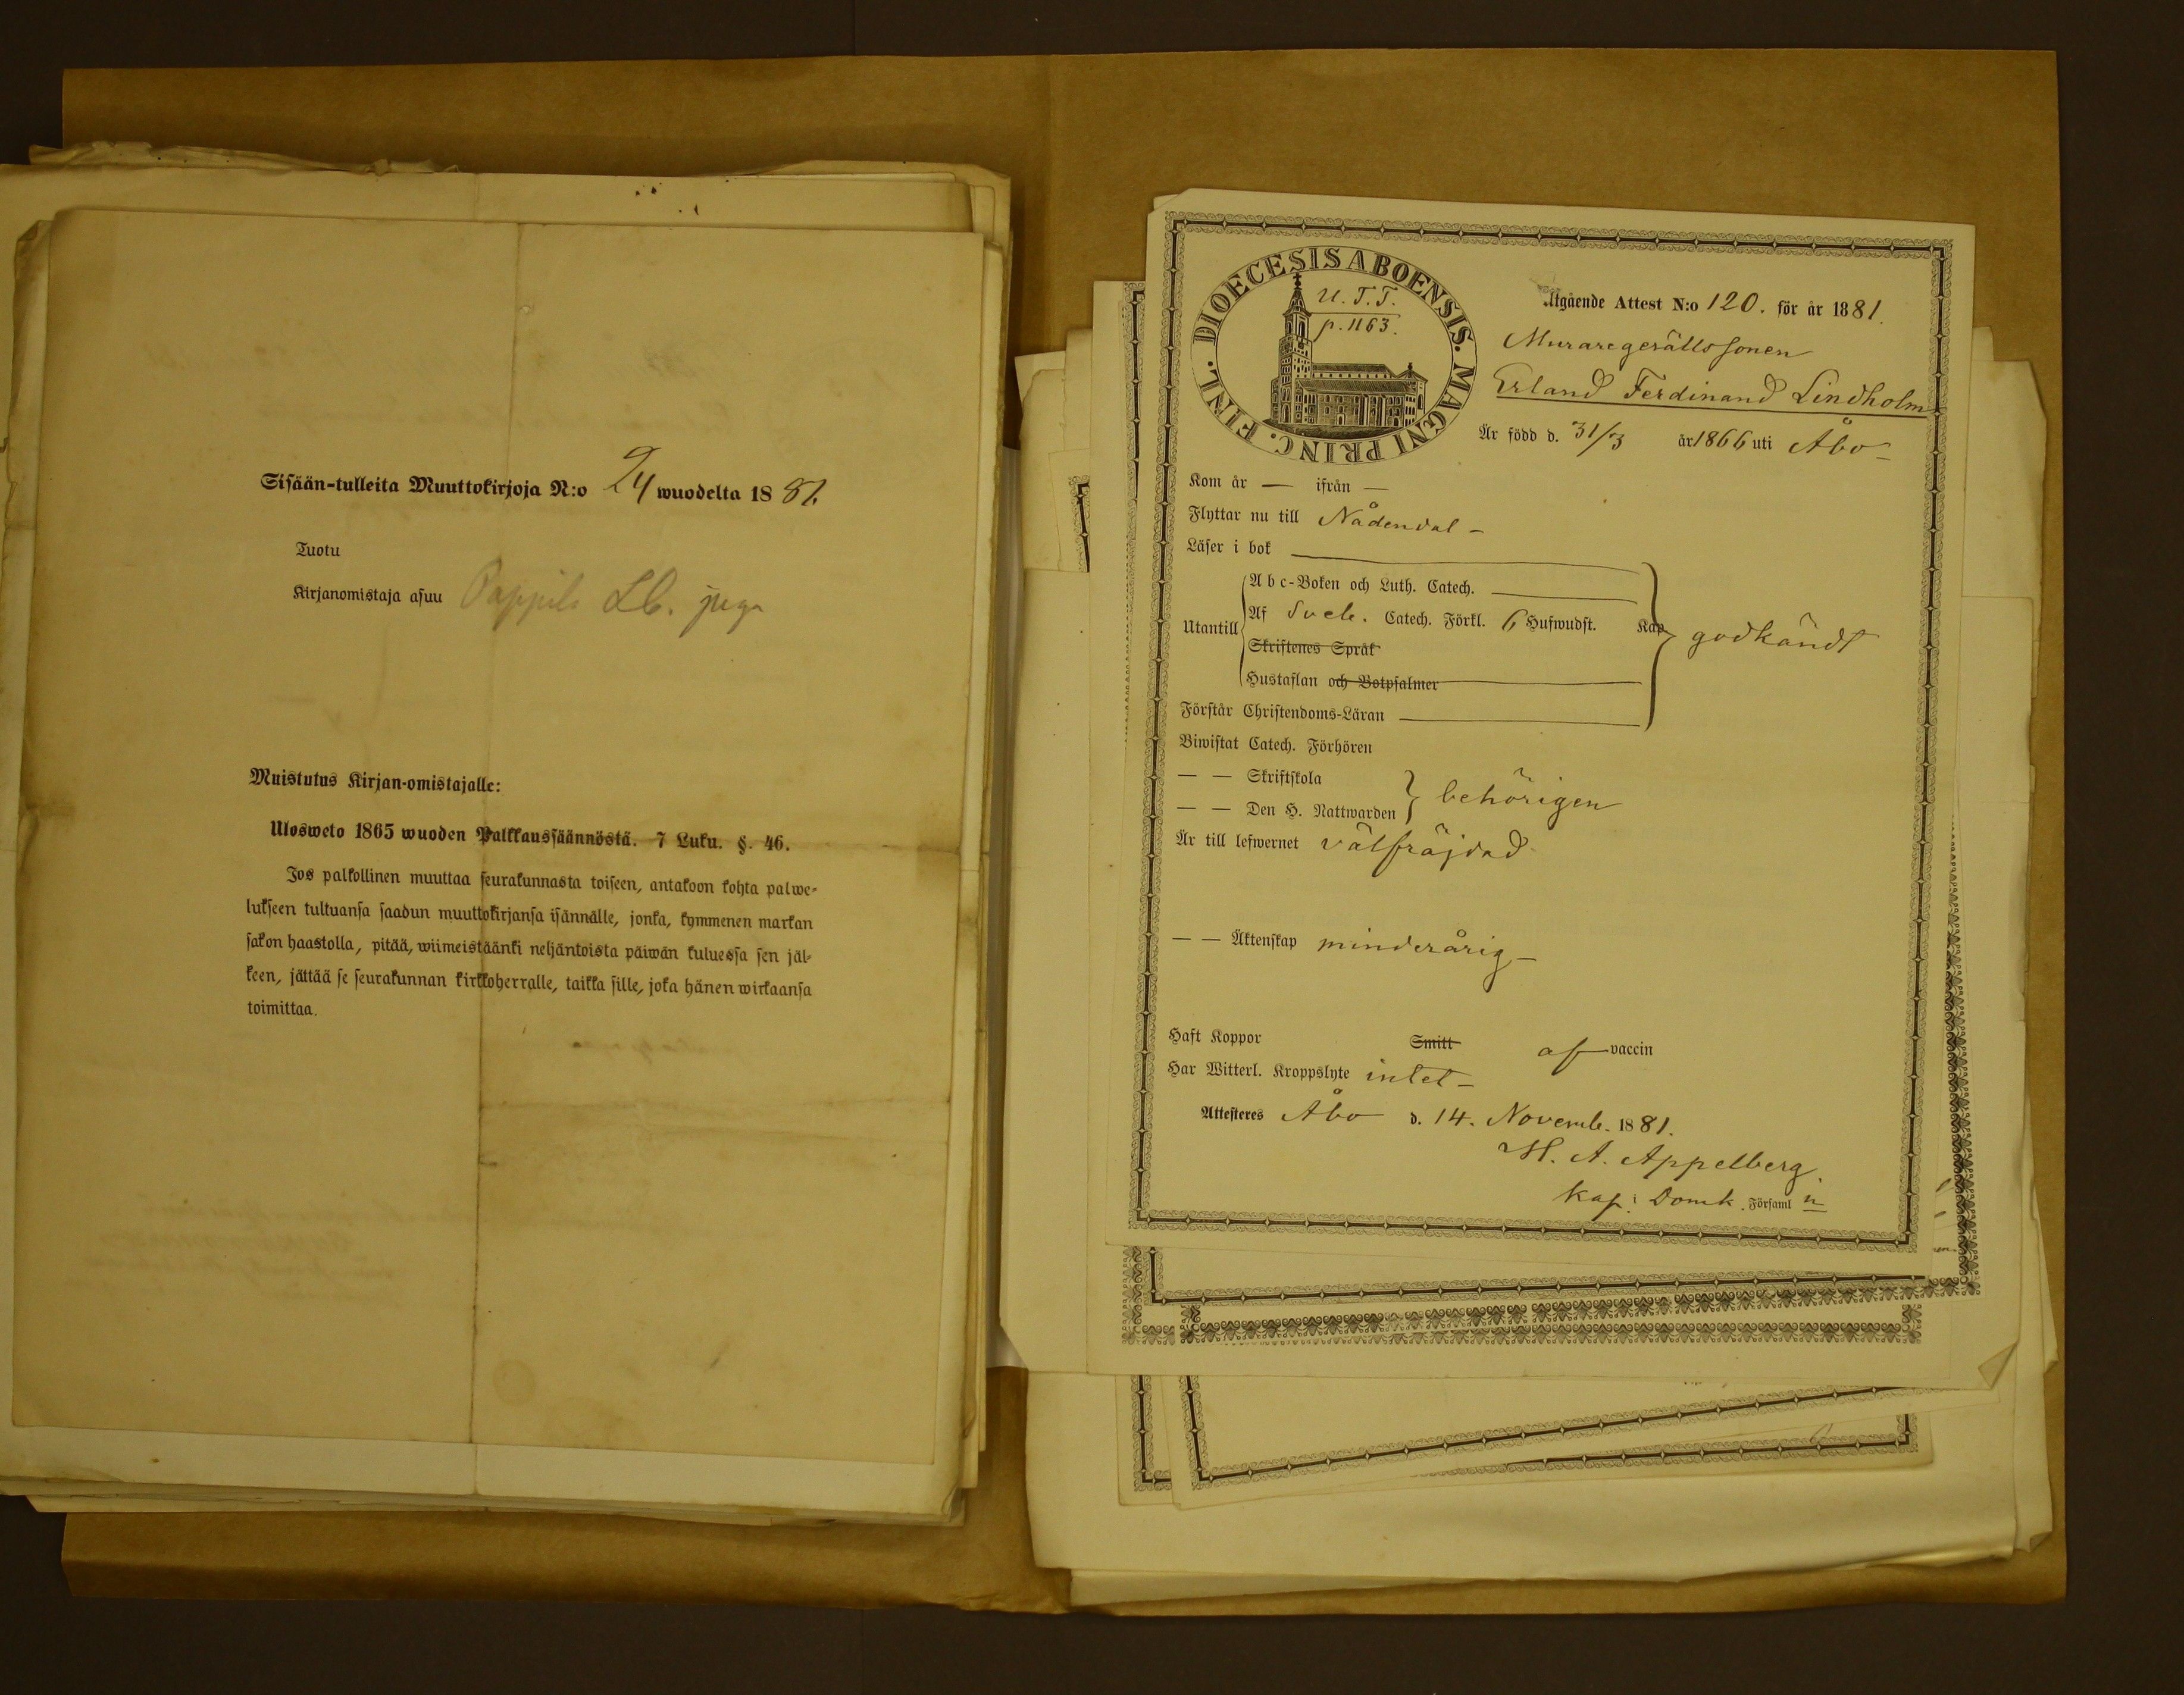 Sisään-tulleita Muuttokirjoja N:o 24 wuodelta 1881.
Tuotu
Kirjanomistaja asuu Pappila Lb.
Muistutus Kirjan-omistajalle:
Ulosweto 1865 wuoden Palkkaussäännöstä. 7 Luku. §. 46.
Jos palkollinen muuttaa seurakunnasta toiseen, antakoon kohta palwe-
lukseen tultuansa saadun muuttokirjansa isännälle, jonka, kymmenen markan
sakon haastolla, pitää, wiimeistäänki neljäntoista päiwän kuluessa sen jäl-
keen, jättää se seurakunnan kirkkoherralle, taikka sille, joka hänen wirkaansa
toimittaa.
DIOECESIS ABOENSIS. MAGNI PRINC. FINL.
U. T. T.
p. 1163.
Utgående Attest N:o 120. för år 1881.
Muraregesällssonen
Erland Ferdinand Lindholm
Är född d. 31/3 år 1866 uti Åbo –
Kom år — ifrån —
Flyttar nu till Nådendal –
Läser i bok
Utantill
A b c-Boken och Luth. Catech.
Af Sveb. Catech. Förkl. 6 Hufwudst. Kap.
Skriftenes Språk
Hustaflan och Botpsalmer
godkändt
Förstår Christendoms-Läran
Biwistat Catech. Förhören
— — Skriftskola
— — Den H. Nattwarden
behörigen
Är till lefwernet välfräjdad
— — Äktenskap minderårig –
Haft Koppor Smitt af vaccin
Har Witterl. Kroppslyte intet –
Attesteres Åbo d. 14. Novemb. 1881.
H. A. Appelberg
Kap: i Domk. Församl